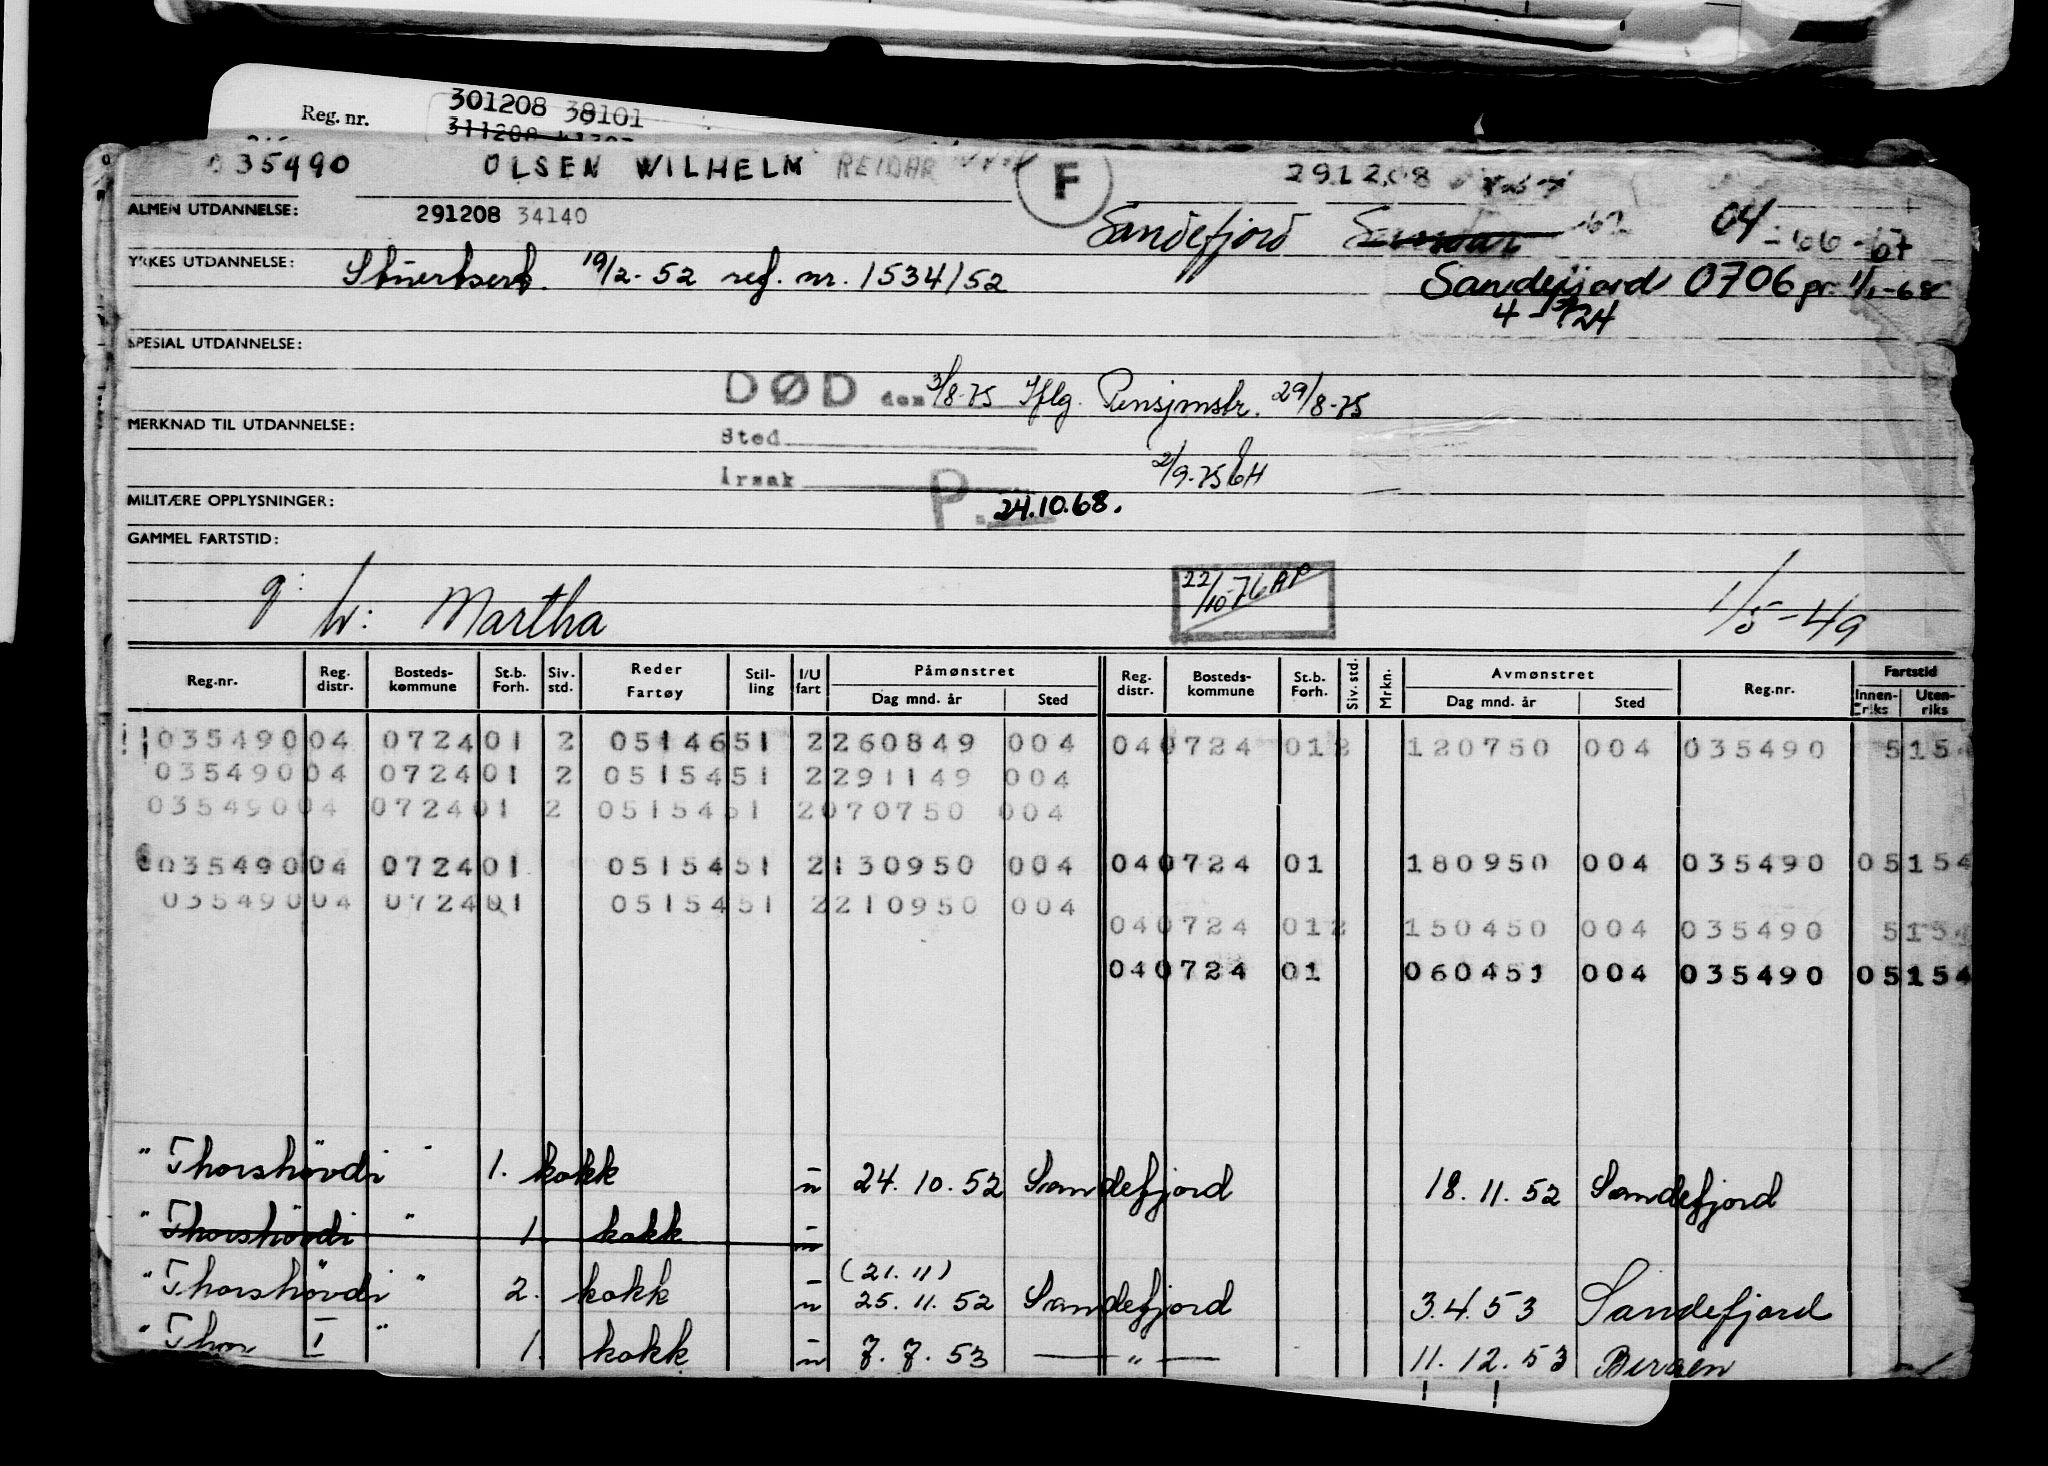 Reg. nr. 301208 38101
035490 OLSEN WILHELM REIDAR F 291208
ALMEN UTDANNELSE: 291208 34140 Sandefjord 04
YRKES UTDANNELSE: Stuertsert. 19/2-52 ref. nr. 1534/52 Sandefjord 0706 pr. 1/1-68
SPESIAL UTDANNELSE:
DØD den 3/8-75 Iflg. Pensjonstr. 29/8-75
MERKNAD TIL UTDANNELSE: Sted
Årsak 2/9-75
MILITÆRE OPPLYSNINGER: P. 24.10.68.
GAMMEL FARTSTID:
g: h: Martha 22/10-76 AP 1/5-49
Reg.nr. Reg. distr. Bosteds-kommune St.b. Forh. Siv. std. Reder Fartøy Stil-ling I/U fart Påmønstret Dag mnd. år Sted Reg. distr. Bosteds-kommune St.b. Forh. Siv. std. Mrkn. Avmønstret Dag mnd. år Sted Reg.nr. Fartstid Innen-riks Uten-riks
035490 04 0724 01 2 0514651 2 260849 004 04 0724 01 2 120750 004 035490 5154
035490 04 0724 01 2 0515451 2 291149 004
035490 04 0724 01 2 0515451 2 070750 004
035490 04 0724 01 0515451 2 130950 004 04 0724 01 180950 004 035490 05154
035490 04 0724 01 0515451 2 210950 004
04 0724 01 2 150450 004 035490 5154
04 0724 01 060451 004 035490 05154
" Thorshövdi " 1. kokk u 24.10.52 Sandefjord 18.11.52 Sandefjord
" Thorshövdi " 1. kokk u
(21.11)
" Thorshövdi " 2. kokk u 25.11.52 Sandefjord 3.4.53 Sandefjord
" Thor I " 1. kokk u 7.7.53 — " — 11.12.53 Bergen